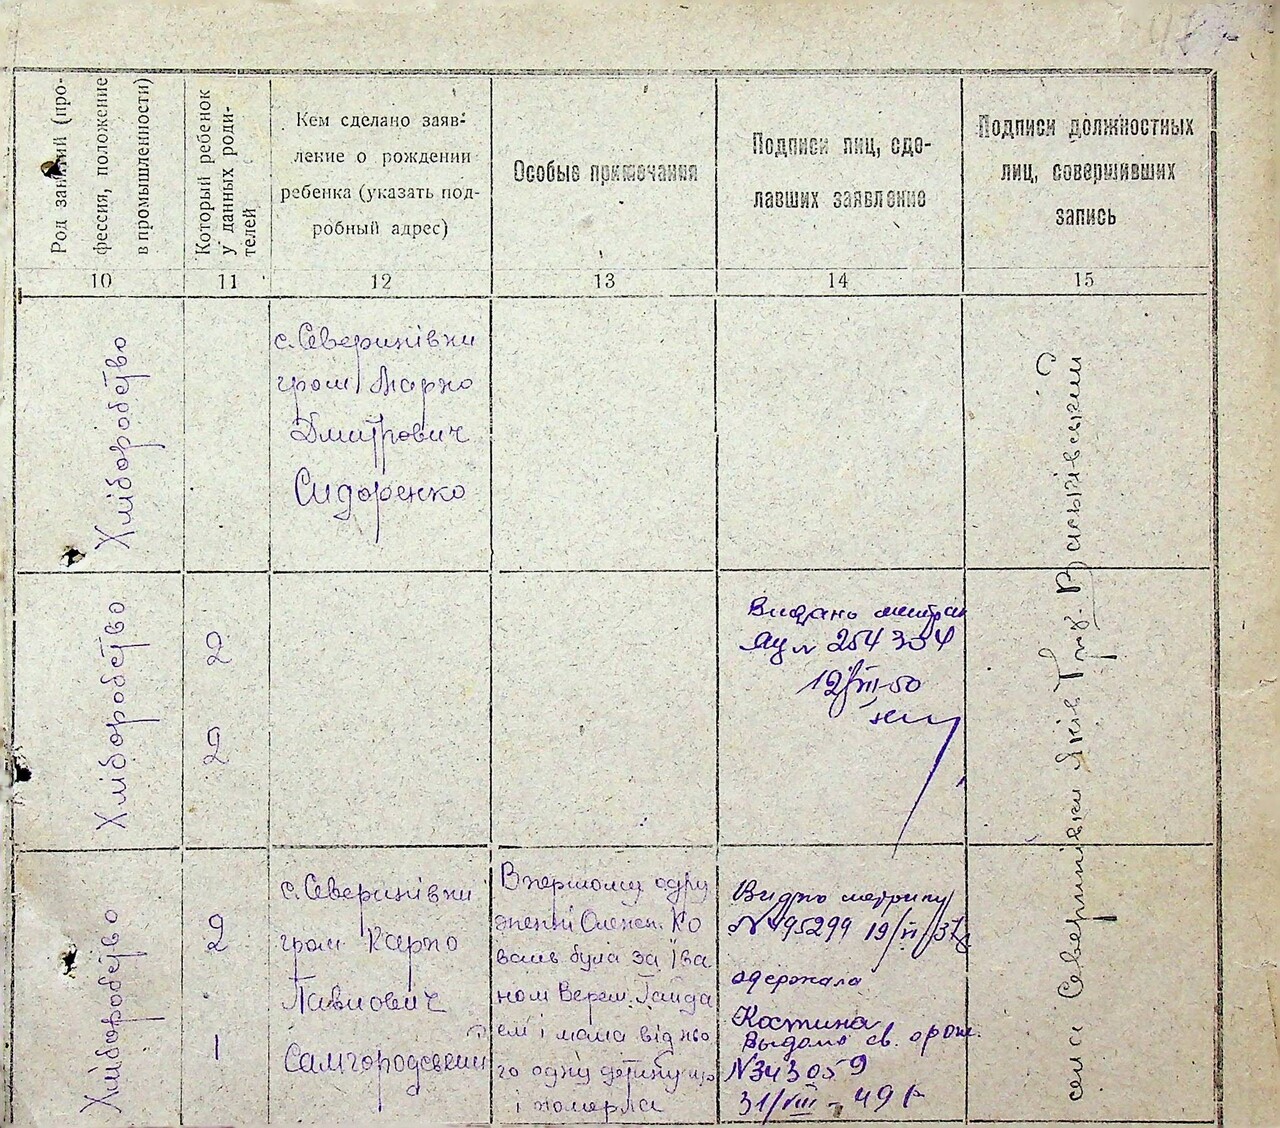 Род занятий (про-
фессия, положение
в промышленности)
Который ребенок
у данных роди-
телей
Кем сделано заяв-
ление о рождении
ребенка (указать под-
робный адрес)
Особые примечания
Подписи лиц, сде-
лавших заявление
Подписи должностных
лиц, совершивших
запись
10 11 12 13 14 15
Хліборобство
с. Северинівки
гром Марко
Дмитрович
Сидоренко
Хліборобство
2
2
Видано метрик
254304
12/III-50
Хліборобство
2
1
с. Северинівки
гром Карпо
Павлович
Самгородський
В першому одру
женні Олексан. Ко
валь була за Іва
ном Верем. Гайда
ем і мала від ньо
го одну дитину що
і померла
Видано метрику
N 495299 19/VI/37
одержала
Костина
Выдано св. о рож.
N 343059
31/VIII-49 г
села Северинівки Яків Гр. Васьківський